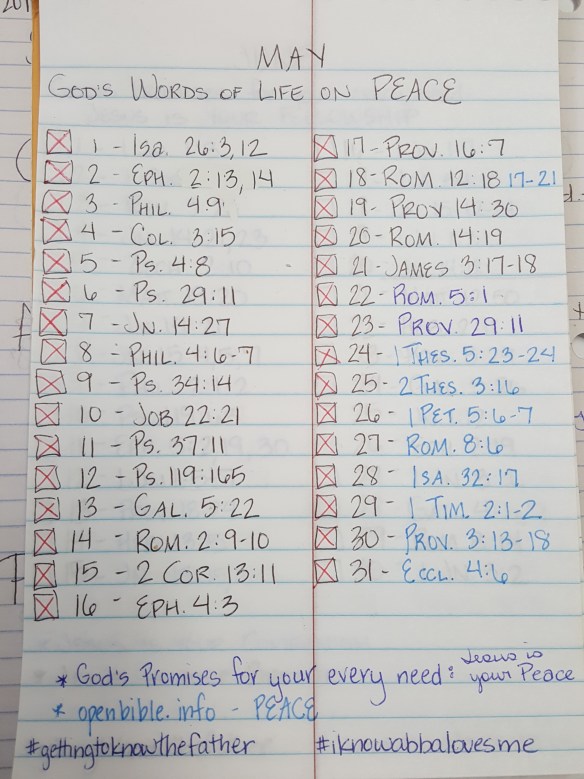 MAY
GOD'S WORDS OF LIFE ON PEACE
1 - Isa. 26:3,12
2 - EPH. 2:13,14
3 - PHIL. 4:9
4 - COL. 3:15
5 - Ps. 4:8
6 - Ps. 29:11
7 - JN. 14:27
8 - PHIL. 4:6-7
9 - Ps. 34:14
10 - JOB 22:21
11 - Ps. 37:11
12 - Ps. 119:165
13 - GAL. 5:22
14 - ROM. 2:9-10
15 - 2 COR. 13:11
16 - EPH. 4:3
17 - PROV. 16:7
18 - ROM. 12:18 17-21
19 - PROV 14:30
20 - ROM. 14:19
21 - JAMES 3:17-18
22 - ROM. 5:1
23 - PROV. 29:11
24 - 1 THES. 5:23-24
25 - 2 THES. 3:16
26 - 1 PET. 5:6-7
27 - ROM. 8:6
28 - ISA. 32:17
29 - 1 TIM. 2:1-2
30 - PROV. 3:13-18
31 - ECCL. 4:6
* God's Promises for your every need: Jesus is your Peace
* openbible.info - PEACE
#gettingtoknowthefather #iknowabbalovesme